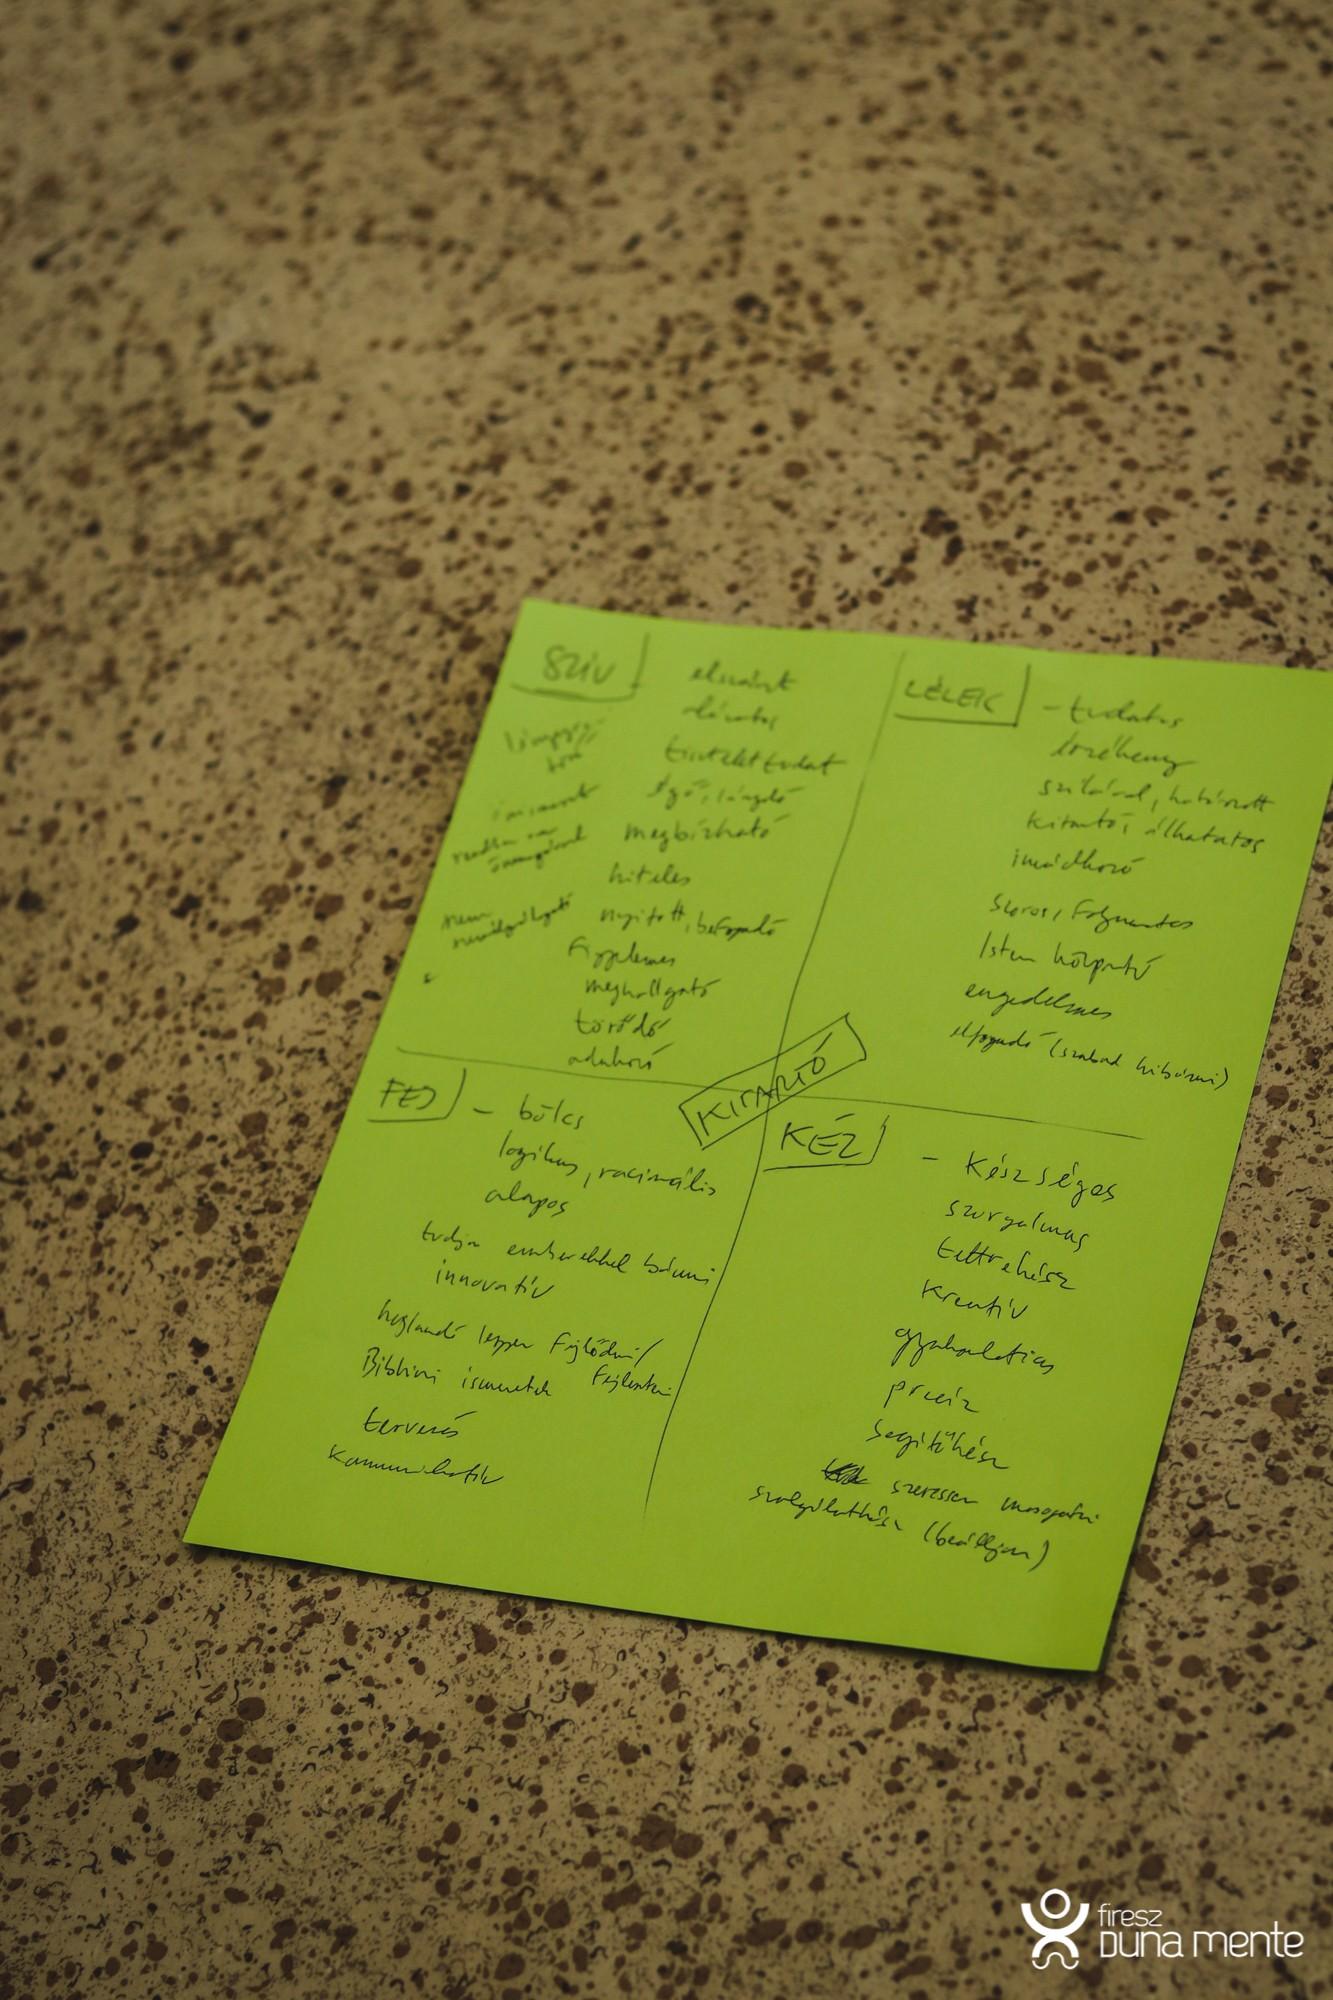 SZÍV
elszánt
alázatos
tisztelettudat
égő, lángoló
megbízható
hiteles
nyitott, befogadó
Figyelmes
meghallgató
törődő
adakozó
nem
LÉLEK
- tudatos
érzékeny
szilárd, határozott
kitartó, álhatatos
imádkozó
szoros, folyamatos
Isten központú
engedelmes
elfogadó (szabad hibázni)
KITARTÓ
FEJ
- bölcs
logikus, racionális
alapos
tudja emberekkel bánni
innovatív
hajlandó legyen fejlődni/
Bibliai ismeretek fejleszteni
tervezés
kommunikatív
KÉZ
- Készséges
szorgalmas
tettrekész
kreatív
gyakorlatias
precíz
segítőkész
szeressen mosogatni
szolgálatkész (beálljon)
firesz
Duna mente